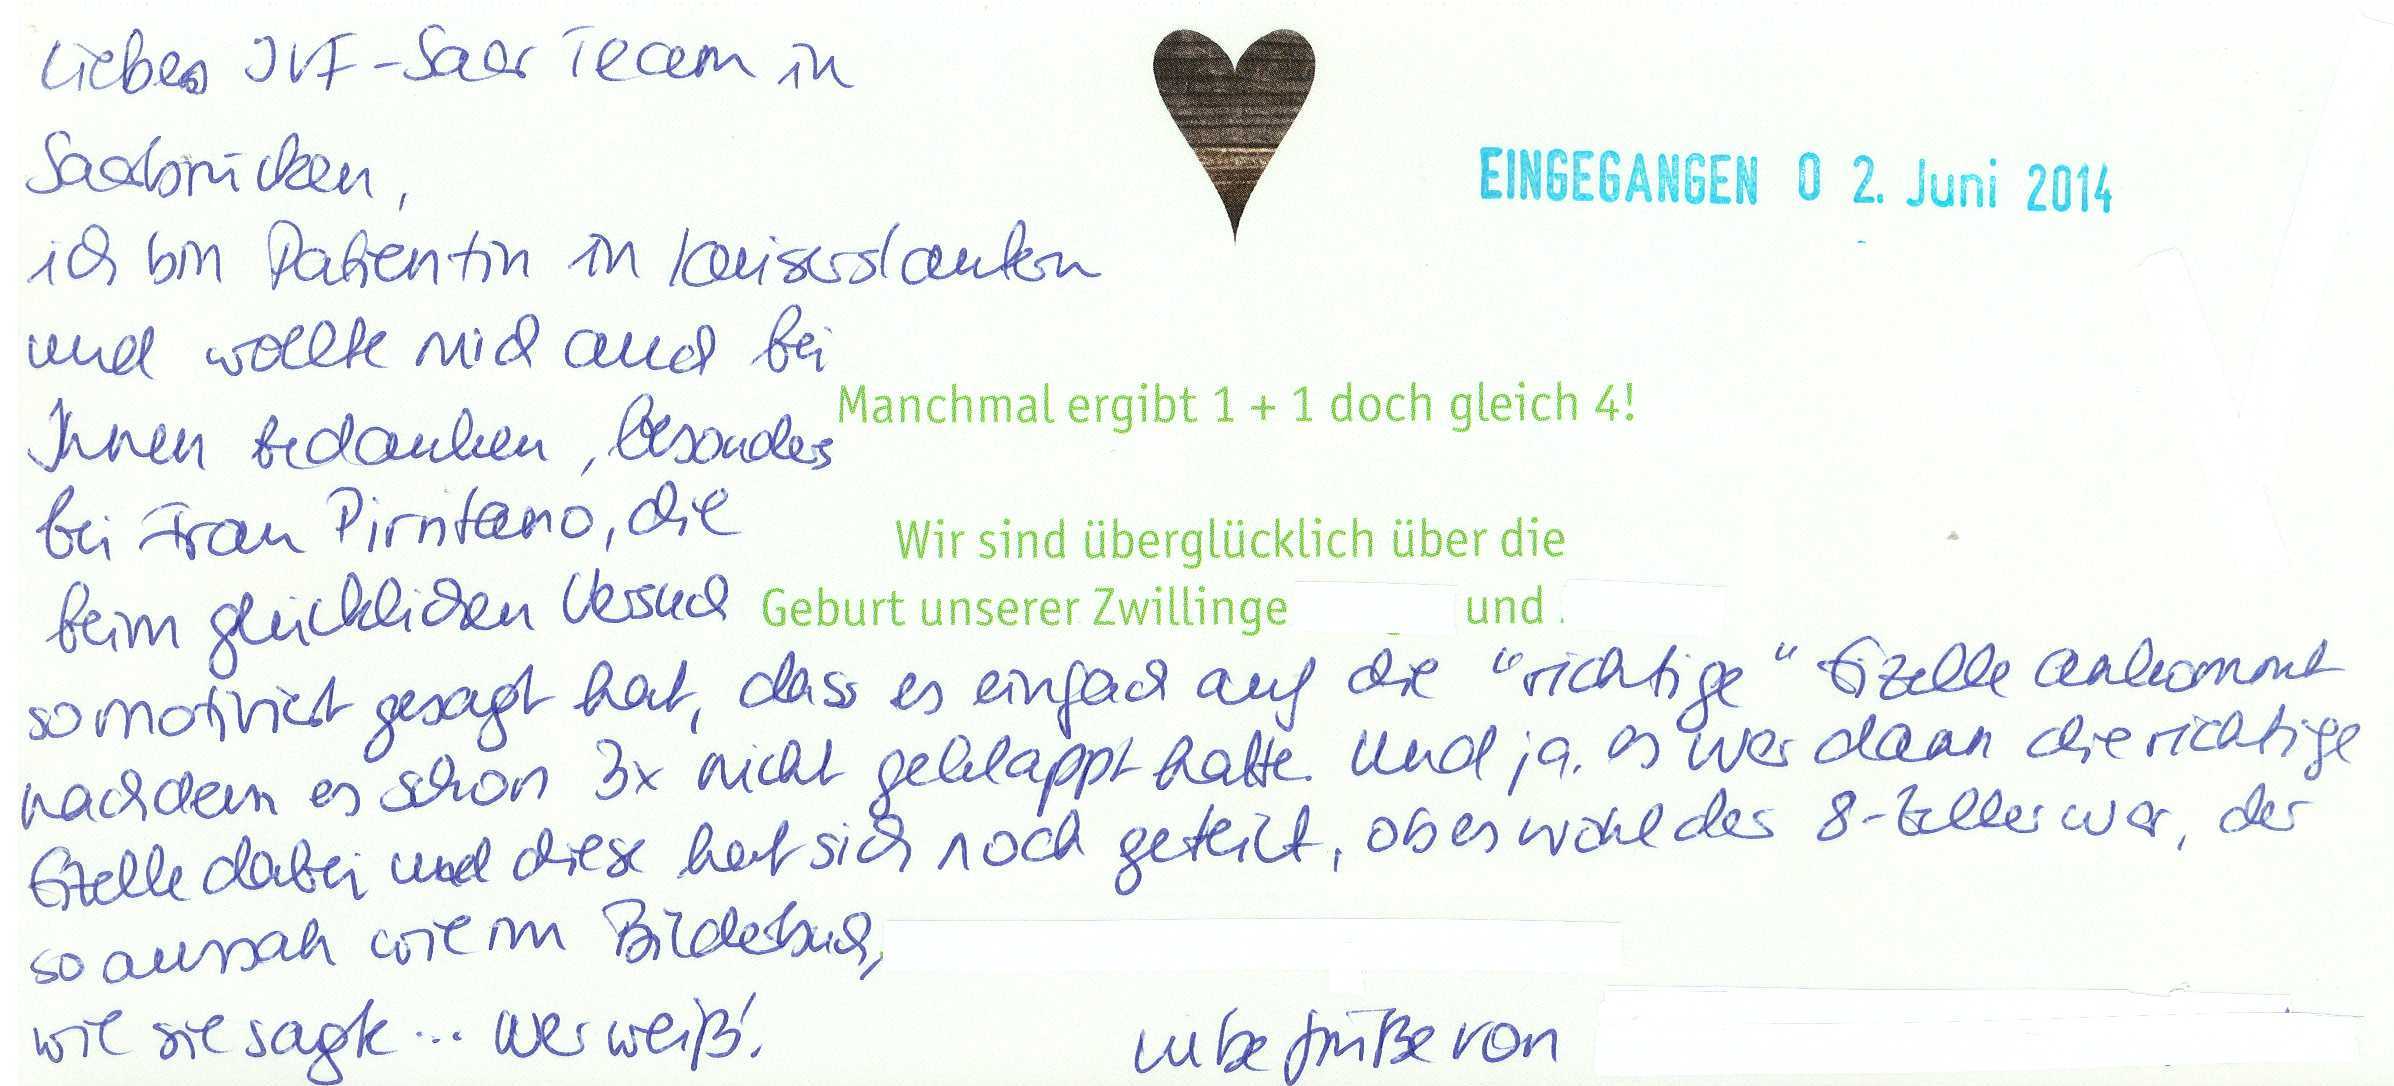 Liebes IVF-Saar Team in
Saarbrücken,
ich bin Patientin in Kaiserslautern
und wollte mich auch bei
Ihnen bedanken, besonders
bei Frau Pirntano, die
beim glücklichen Versuch
so motiviert gesagt hat, dass es einfach auf die "richtige" Eizelle ankommt
nachdem es schon 3x nicht geklappt hatte. Und ja, es war dann die richtige
Eizelle dabei und diese hat sich noch geteilt, ob es wohl der 8-Zeller war, der
so aussah wie im Bilderbuch,
wie sie sagte... Wer weiß!
Liebe Grüße von
EINGEGANGEN 0 2. Juni 2014
Manchmal ergibt 1 + 1 doch gleich 4!
Wir sind überglücklich über die
Geburt unserer Zwillinge und